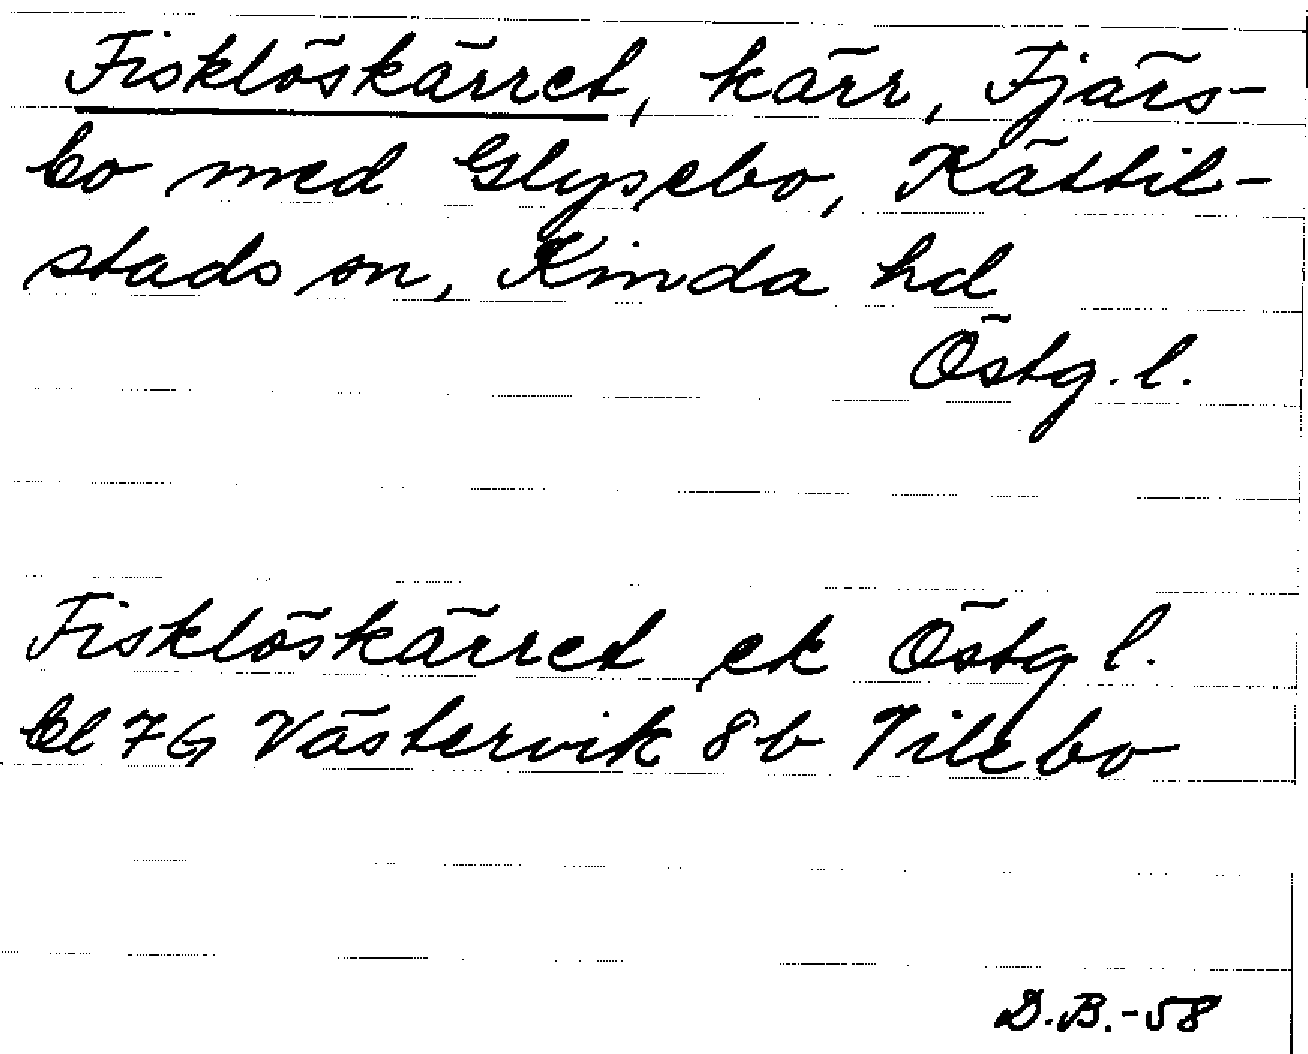 Fisklöskärret, kärr, Fjärs-
bo med Glysebo, Kättil-
stads sn, Kinda hd
Östg. l.
Fisklöskärret ek Östg l.
bl 7G Västervik 8b Tilebo
D.B.-58